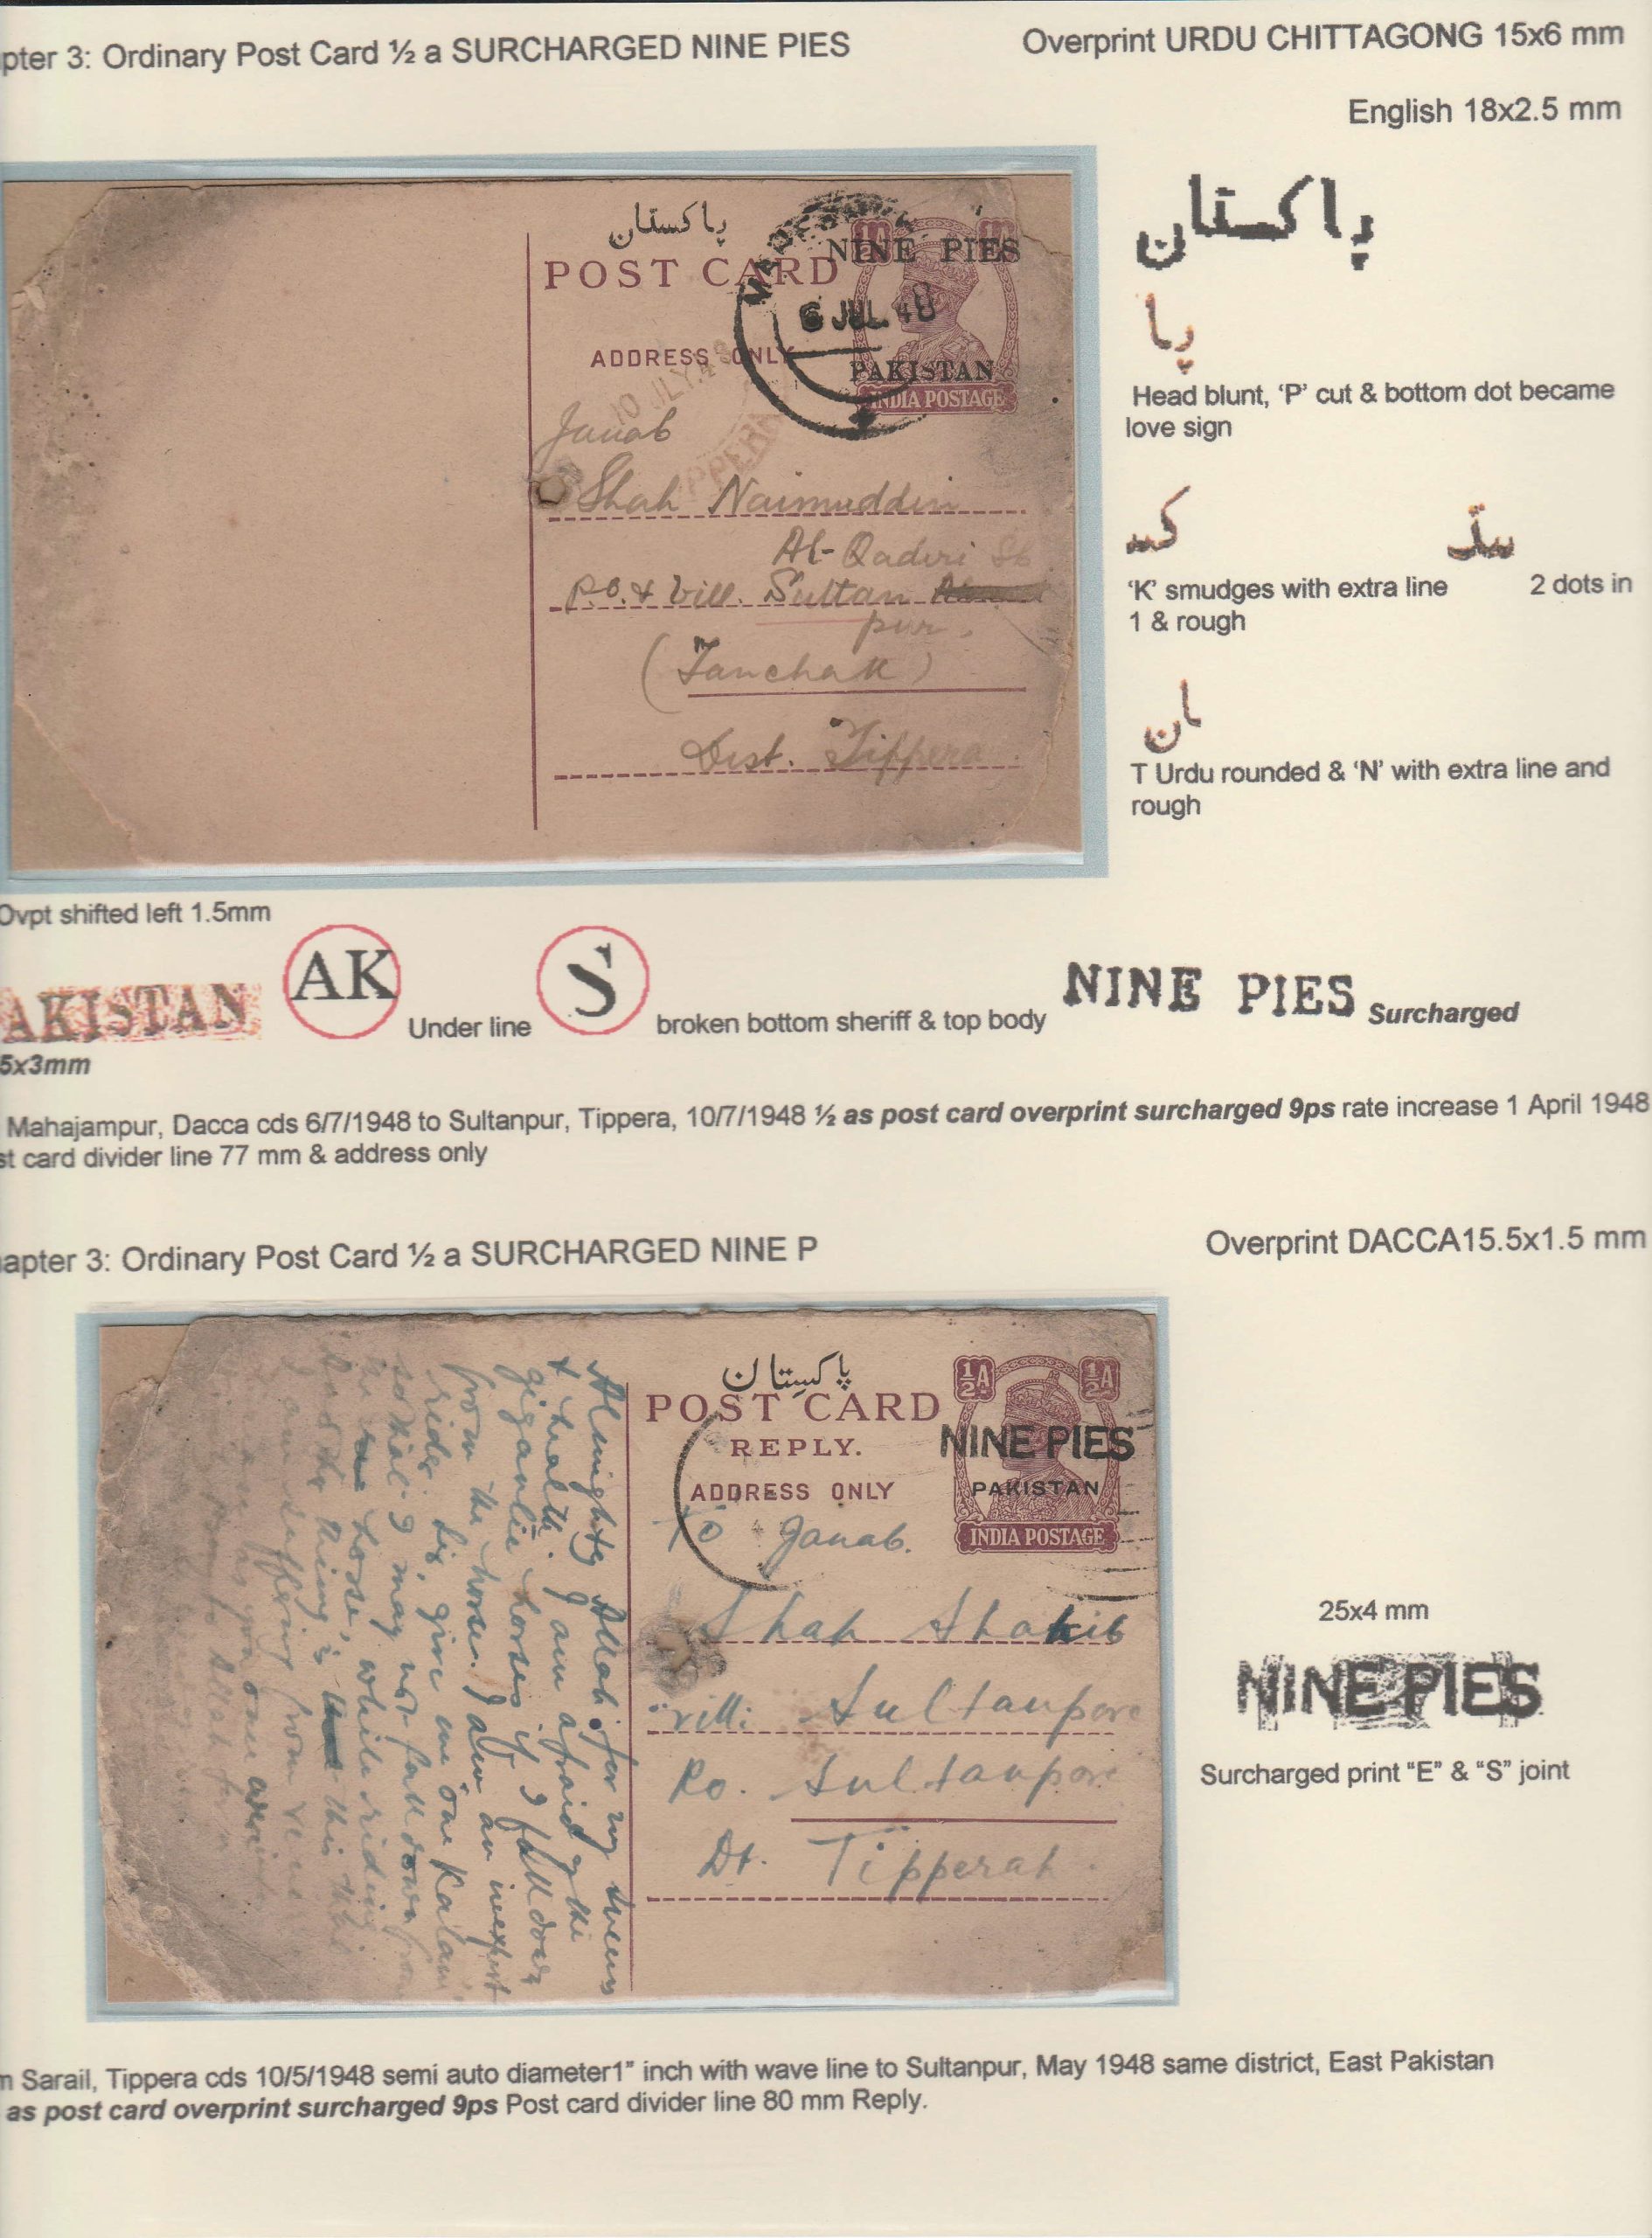 pter 3: Ordinary Post Card ½ a SURCHARGED NINE PIES
Overprint URDU CHITTAGONG 15x6 mm
English 18x2.5 mm
پاکستان
POST CARD
NINE PIES
6 JUL. 48
ADDRESS ONLY
PAKISTAN
INDIA POSTAGE
10 JLY. 48
Janab
Shah Naimuddin
Al-Qadiri Sb
P.O. & Vill. Sultan
pur.
(Fanchak)
Dist. Tippera
پاکستان
پا
Head blunt, ‘P’ cut & bottom dot became
love sign
‘K’ smudges with extra line 2 dots in
1 & rough
ان
T Urdu rounded & ‘N’ with extra line and
rough
Ovpt shifted left 1.5mm
AKISTAN AK Under line S broken bottom sheriff & top body NINE PIES Surcharged
5x3mm
Mahajampur, Dacca cds 6/7/1948 to Sultanpur, Tippera, 10/7/1948 ½ as post card overprint surcharged 9ps rate increase 1 April 1948
st card divider line 77 mm & address only
apter 3: Ordinary Post Card ½ a SURCHARGED NINE P
Overprint DACCA15.5x1.5 mm
پاکستان
POST CARD
REPLY.
ADDRESS ONLY
½A ½A
NINE PIES
PAKISTAN
INDIA POSTAGE
To Janab.
Shah Shakib
vill: Sultanpore
Po. Sultanpore
Dt. Tipperah.
Almighty Allah for my
& health. I am afraid of the
gigantic horses if I fall down
from the horse. I am an inexpert
rider. Sir, give me one Kalam
so that I may not fall down from
the horse, while riding
thing is this that
I am suffering from
25x4 mm
NINE PIES
Surcharged print “E” & “S” joint
m Sarail, Tippera cds 10/5/1948 semi auto diameter1” inch with wave line to Sultanpur, May 1948 same district, East Pakistan
as post card overprint surcharged 9ps Post card divider line 80 mm Reply.